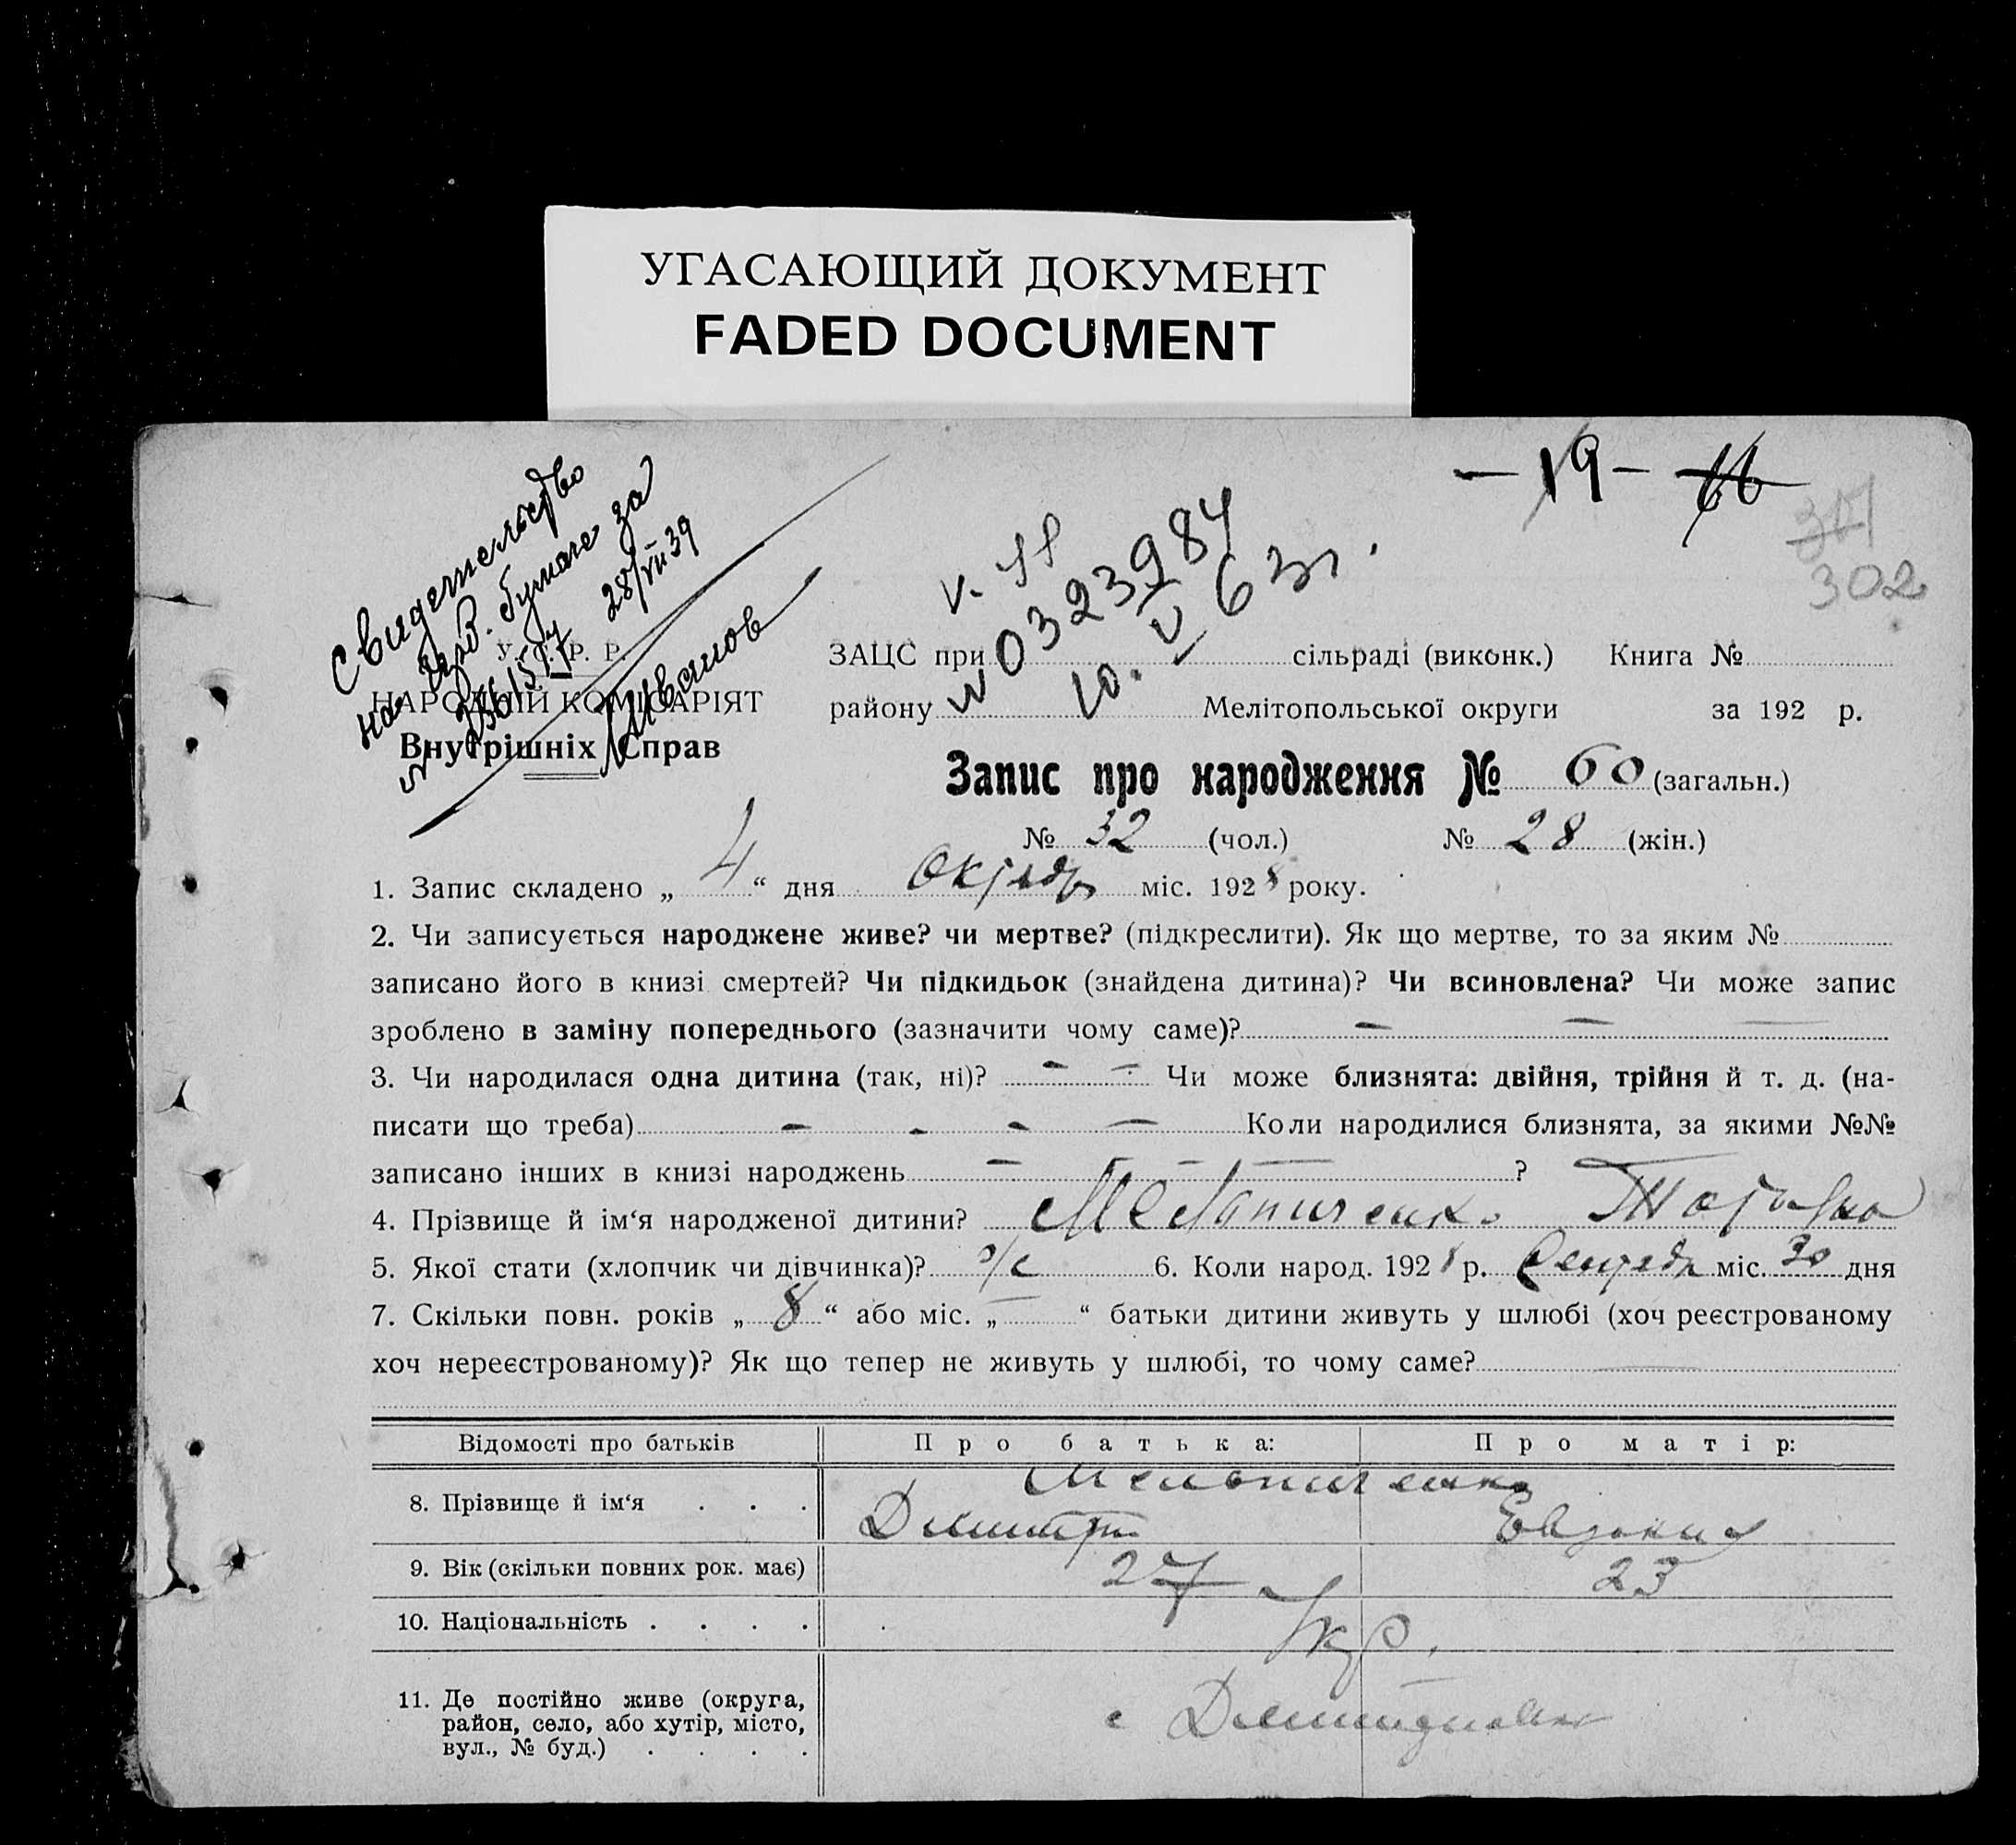 УГАСАЮЩИЙ ДОКУМЕНТ
FADED DOCUMENT
- 19 -
302
Свидетельство
на герб. бумаге за
28/VII 39
Иванов
V. ЯЯ
№ 0323984
10. V 63г.
У. С. Р. Р.
НАРОДНІЙ КОМІСАРІЯТ
Внутрішніх Справ
ЗАЦС при сільраді (виконк.) Книга №
району Мелітопольської округи за 192 р.
Запис про народження № 60 (загальн.)
№ 32 (чол.) № 28 (жін.)
1. Запис складено „ 4 “ дня Октядр міс. 1928 року.
2. Чи записується народжене живе? чи мертве? (підкреслити). Як що мертве, то за яким №
записано його в книзі смертей? Чи підкидьок (знайдена дитина)? Чи всиновлена? Чи може запис
зроблено в заміну попереднього (зазначити чому саме)? — — —
3. Чи народилася одна дитина (так, ні)? — — Чи може близнята: двійня, трійня й т. д. (на-
писати що треба) - - - — Коли народилися близнята, за якими №№
записано інших в книзі народжень — — — ?
4. Прізвище й ім‘я народженої дитини? Мельниченко Татьяна
5. Якої стати (хлопчик чи дівчинка)? ж 6. Коли народ. 1928 р. Сентядр міс. 30 дня
7. Скільки повн. років „ 8 “ або міс. „ — “ батьки дитини живуть у шлюбі (хоч реєстрованому
хоч нереєстрованому)? Як що тепер не живуть у шлюбі, то чому саме? —
Відомості про батьків Про батька: Про матір:
8. Прізвище й ім‘я . . . Мельниченко
Дмитри Евдокия
9. Вік (скільки повних рок. має) 27 23
10. Національність . . . . Укр.
11. Де постійно живе (округа,
район, село, або хутір, місто,
вул., № буд.) . . . . с